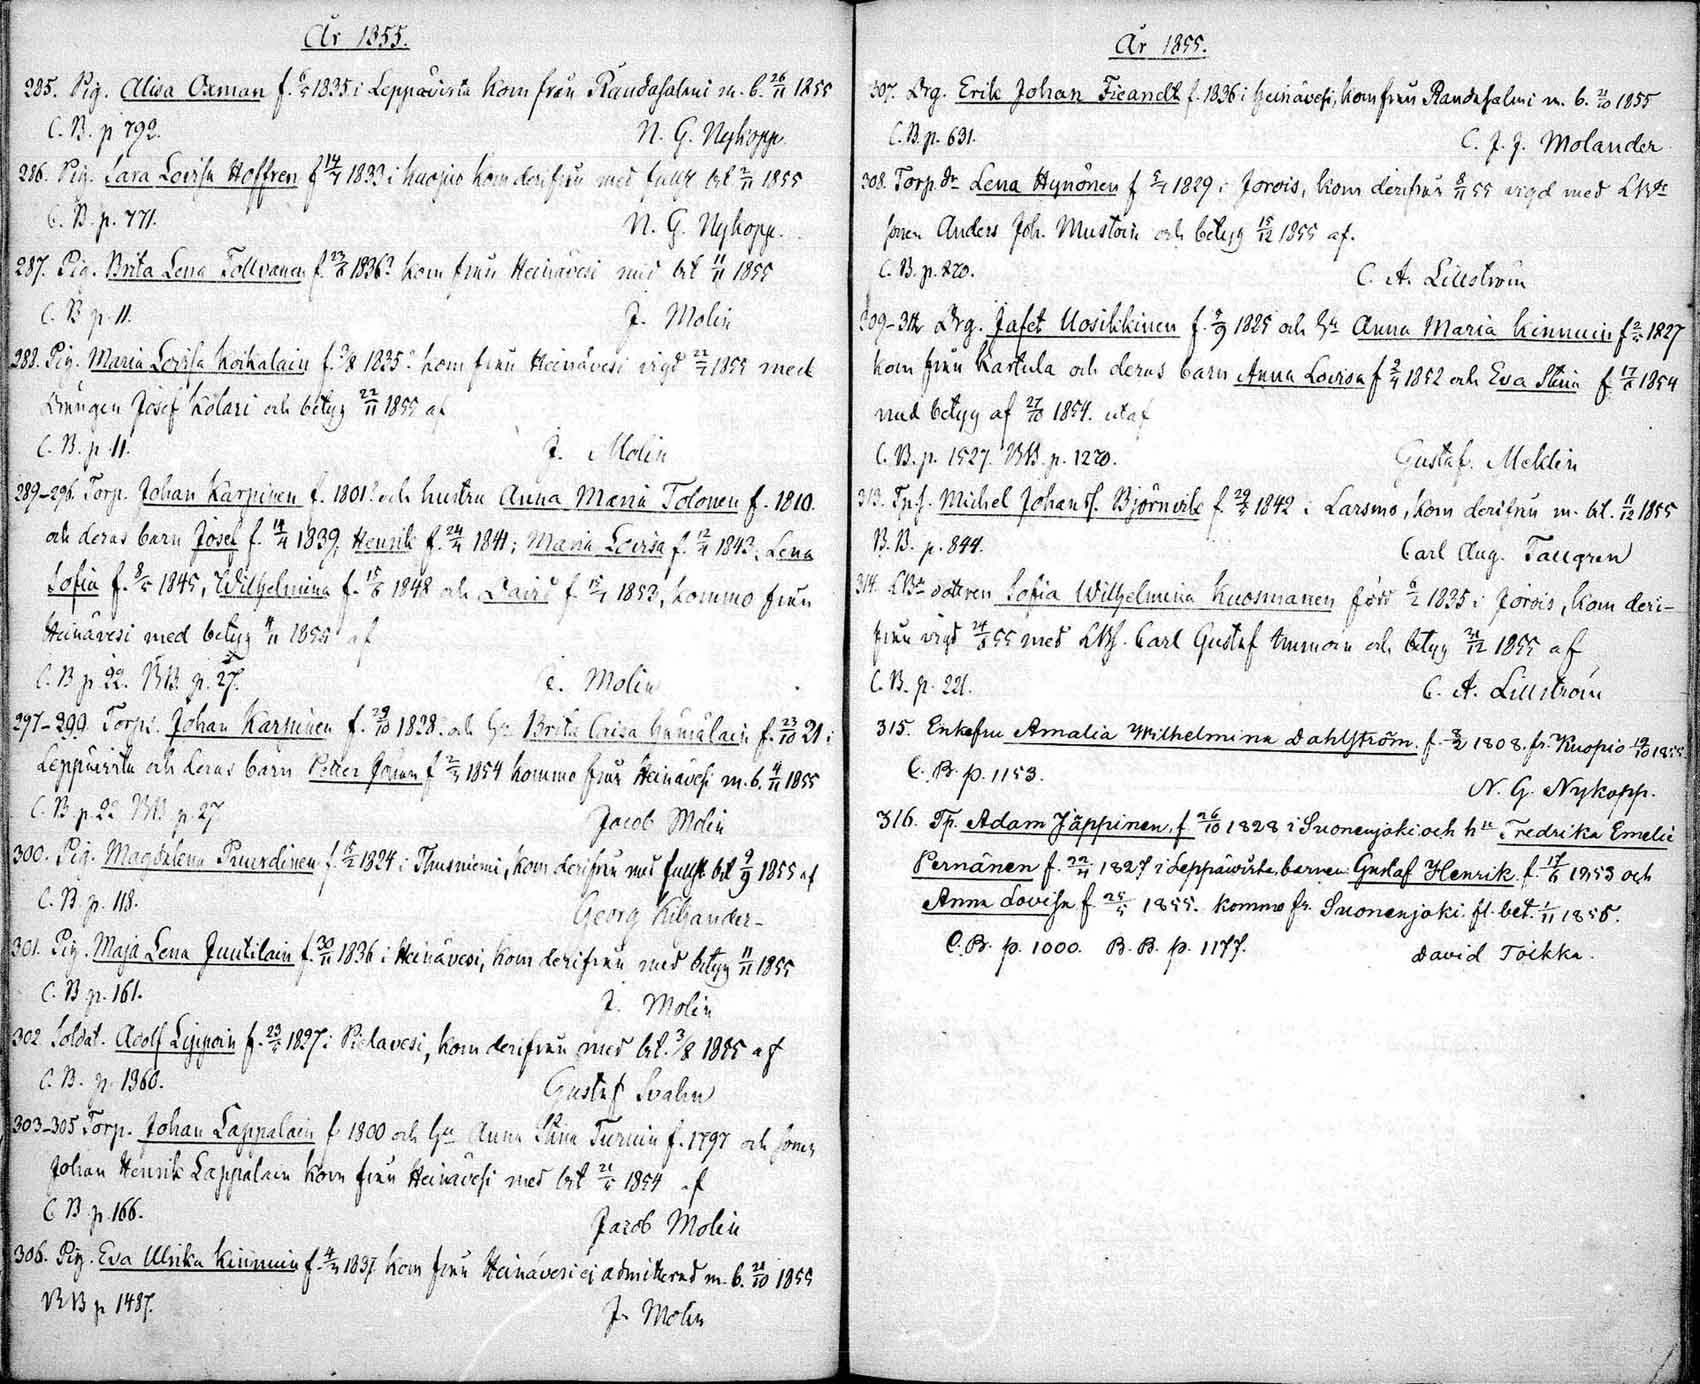 År 1855.
285. Pig. Alisa Oxman f. 6/5 1835 i Leppävirta kom från Randasalmi m. b. 26/11 1855
C. B. p 792. N. G. Nykopp.
286. Pig. Sara Lovisa Hoffren f 14/4 1833 i Kuopio kom derifrån med bet 2/11 1855
C. B. p. 771. N. G. Nykopp.
287. Pig. Brita Lena Tollvanen f. 23/8 1836? kom från Heinävesi med bet 11/11 1855
C. B p. 11. J. Molin
288. Pig. Maria Lovisa Koikalain f. 3/8 1835? kom från Heinävesi vigd 22/7 1855 med
Drängen Josef Kolari och betyg 22/11 1855 af
C. B. p. 11. J. Molin
289-296. Torp. Johan Karpinen f. 1801? och hustru Anna Maria Tolonen f. 1810.
och deras barn Josef f. 14/4 1839; Henrik f. 24/4 1841; Maria Lovisa f. 12/4 1843, Lena
Sofia f. 8/5 1845, Wilhelmina f. 15/6 1848 och David f. 15/4 1853, kommo från
Heinävesi med betyg 4/11 1855 af
C. B p. 22. BB. p. 27. J. Molin
297-299 Torps. Johan Karpinen f. 29/10 1828. och hu Brita Caisa Hämäläin f. 23/10 21 i
Leppävirta och deras barn Petter Johan f 2/3 1854 kommo från Heinävesi m. b. 4/11 1855
C. B p. 22 BB p. 27 Jacob Molin
300. Pig. Magdalena Puurdinen f. 15/2 1824 i Thusniemi, kom derifrån med bet 9/9 1855 af
C. B. p. 118. Georg Kihander
301. Pig. Maja Lena Juutilain f. 30/11 1836 i Heinävesi, kom derifrån med betyg 11/11 1855
C. B p. 161. J. Molin
302 Soldat. Adolf Lyppoin f. 23/5 1827 i Pielavesi, kom derifrån med bet. 3/8 1855 af
C. B. p. 1360. Gustaf Svahn
303-305 Torp. Johan Lappalain f. 1800 och hu Anna Stina Turuin f. 1797 och sonen
Johan Henrik Lappalain kom från Heinävesi med bet 21/5 1854 af
C B p. 166. Jacob Molin
306. Pig. Eva Ulrika Kinnuin f. 4/4 1837 kom från Heinävesi ej admitterad m. b. 21/10 1855
BB p 1487. J. Molin
År 1855.
307. Drg. Erik Johan Fieandt f. 1836 i Heinävesi, kom från Randasalmi m. b. 21/10 1855
C. B. p. 631. C. J. J. Molander
308. Torp. dr Lena Hynönen f 5/4 1829 i Jorois, kom derifrån 8/11 55 vigd med LBde
sonen Anders Joh. Mustoin och betyg 15/12 1855 af.
C. B. p. 270. C. A. Lillström
309-312. Drg. Jafet Uosikkinen f. 9/9 1825 och hu Anna Maria Kinnuin f 2/5 1827
kom från Kartula och deras barn Anna Lovisa f 2/4 1852 och Eva Stina f. 17/6 1854
med betyg af 27/10 1854. utaf
C. B. p. 1527. BB. p. 1270. Gustaf. Meklin
313. Tpf. Michel Johans. Björnvik f. 29/5 1842 i Larsmo, kom derifrån m. bet. 11/12 1855
B. B. p. 844. Carl Aug. Tallgren
314. LBde dottren Sofia Wilhelmina Kuosmanen född 6/2 1835 i Jorois, kom deri-
från vigd 24/6 55 med LBs. Carl Gustaf Immoin och betyg 21/12 1855 af
C. B. p. 221. C. A. Lillström
315. Enkefru Amalia Wilhelmina Dahlström. f. 8/2 1808. fr. Kuopio 19/10 1855
C. B. p. 1153. N. G. Nykopp.
316. Tp. Adam Jäppinen, f. 26/10 1828 i Suonenjoki och hu Fredrika Emelie
Pernänen f. 22/4 1827 i Leppävirta, barnen Gustaf Henrik. f. 17/6 1853 och
Anna Lovisa f 25/5 1855. kommo fr. Suonenjoki fl. bet. 1/11 1855.
C. B. p. 1000. B. B. p. 1177. David Toikka.